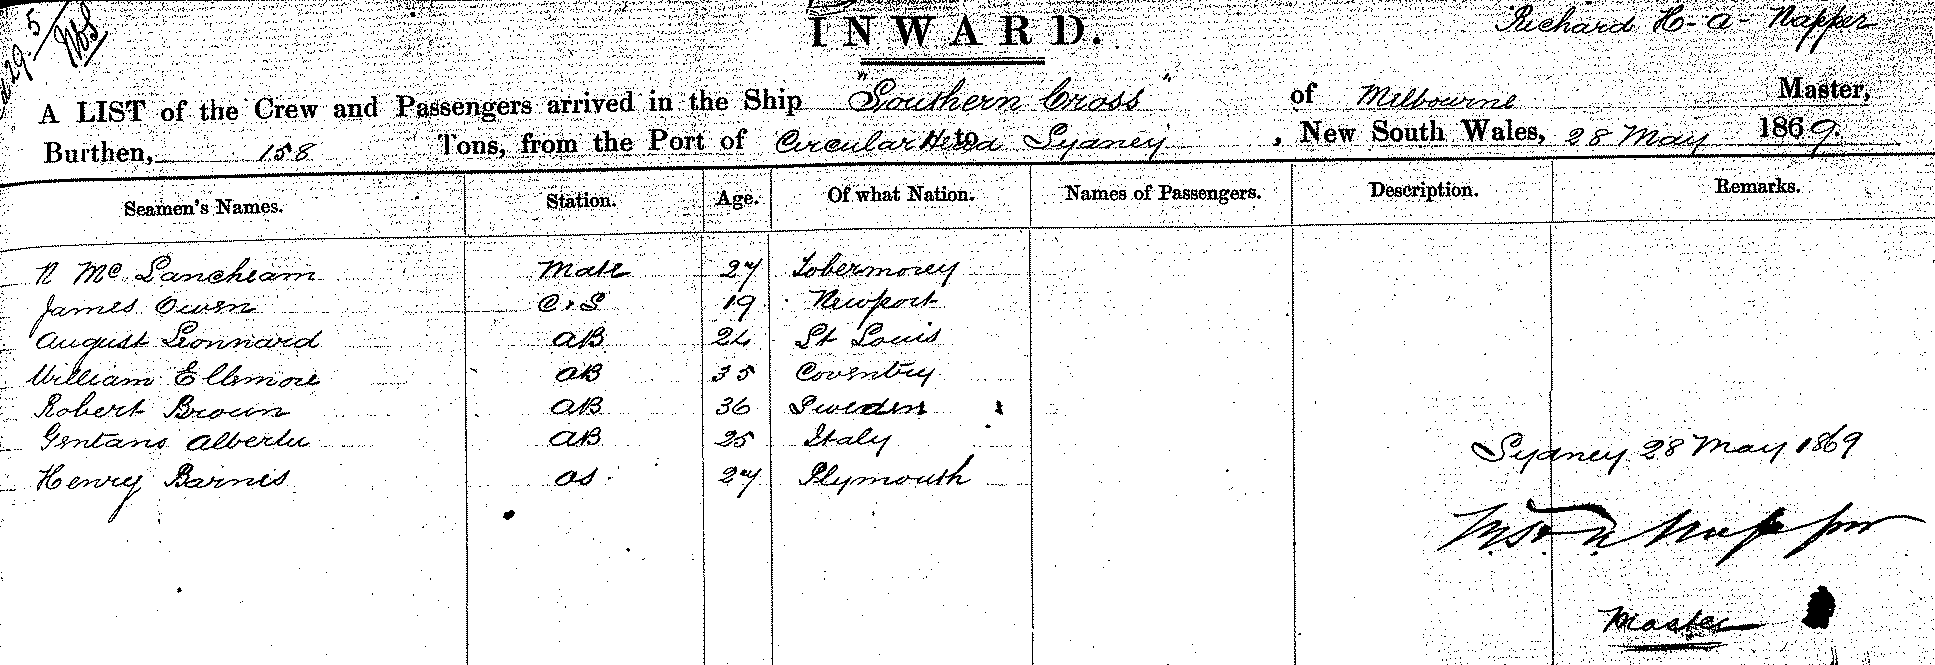 29.5
INWARD.
Richard H-a-Napper
A LIST of the Crew and Passengers arrived in the Ship "Southern Cross" of Melbourne Master,
Burthen, 158 Tons, from the Port of Circular Head to Sydney, New South Wales, 28 May 1869.
Seamen's Names. Station. Age. Of what Nation. Names of Passengers. Description. Remarks.
N Mc Lancheam Mate 27 Tobermorey
James Owen C.S 19 Newport
August Leonnard AB 24 St Louis
William Ellemore AB 35 Coventry
Robert Brown AB 36 Sweden
Gentano Alberte AB 25 Italy
Henry Barnes OS. 27 Plymouth
Sydney 28 May 1869
Napper
Master